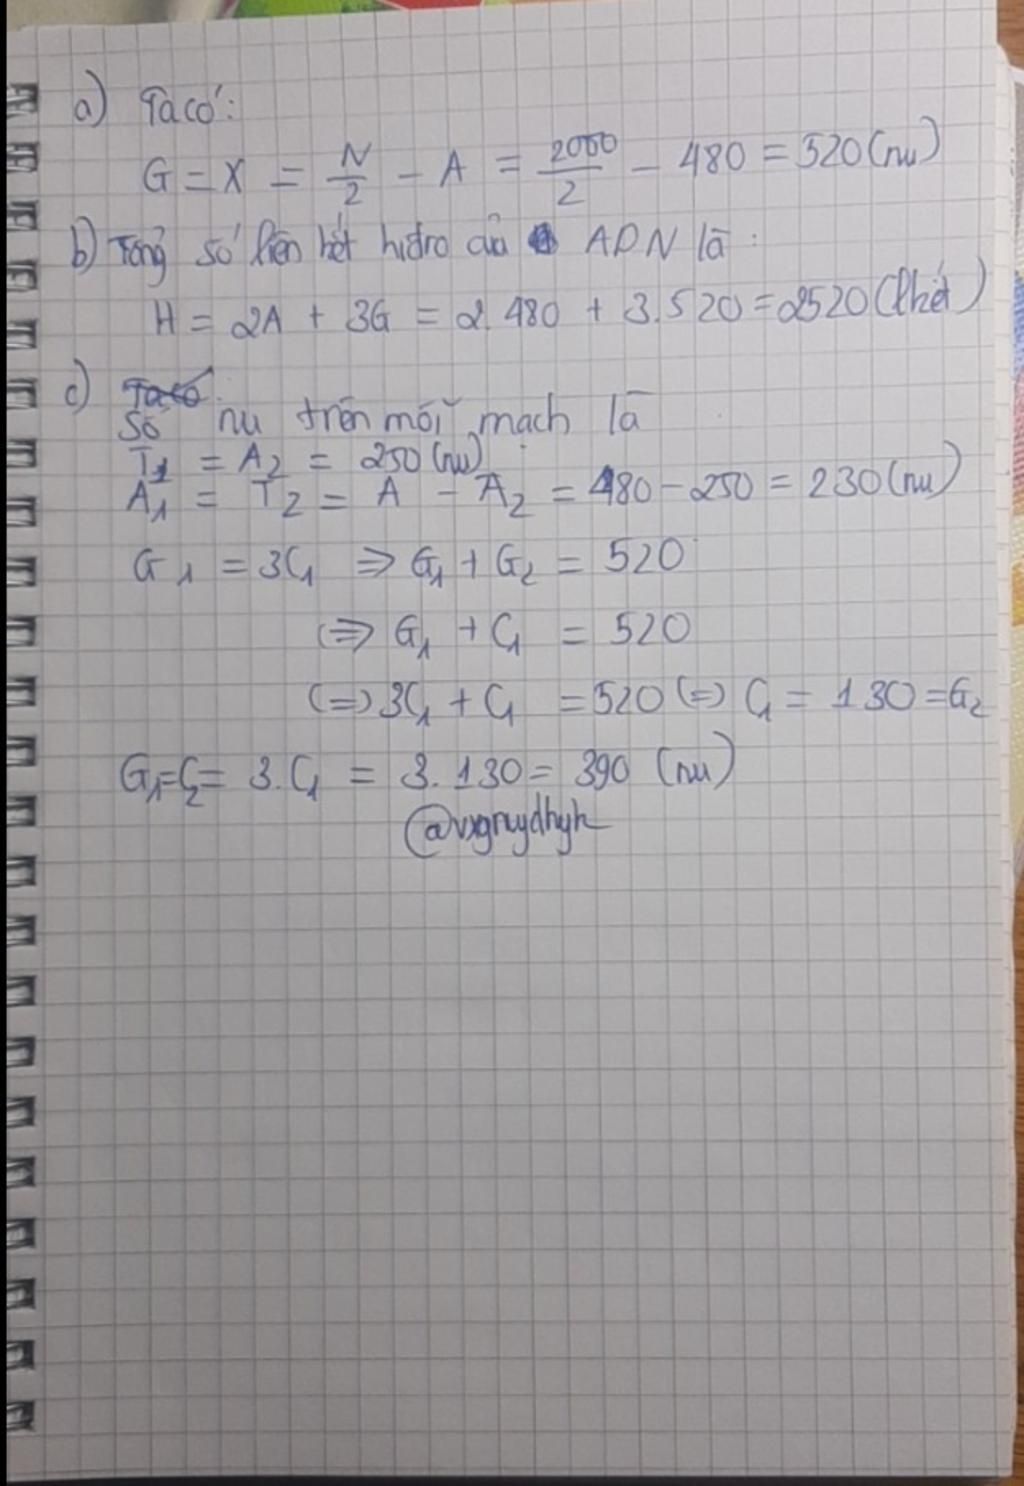 a) Ta có:
G = X = N/2 - A = 2000/2 - 480 = 520 (nu)
b) Tổng số liên kết hiđro của ADN là:
H = 2A + 3G = 2.480 + 3.520 = 2520 (lkết)
c) Ta có:
Số nu trên mỗi mạch là
T1 = A2 = 250 (nu)
A1 = T2 = A - A2 = 480 - 250 = 230 (nu)
G1 = 3C1 => G1 + G2 = 520
(=> G1 + C1 = 520
(=) 3C1 + C1 = 520 (=) C1 = 130 = G2
G1 = C2 = 3.C1 = 3.130 = 390 (nu)